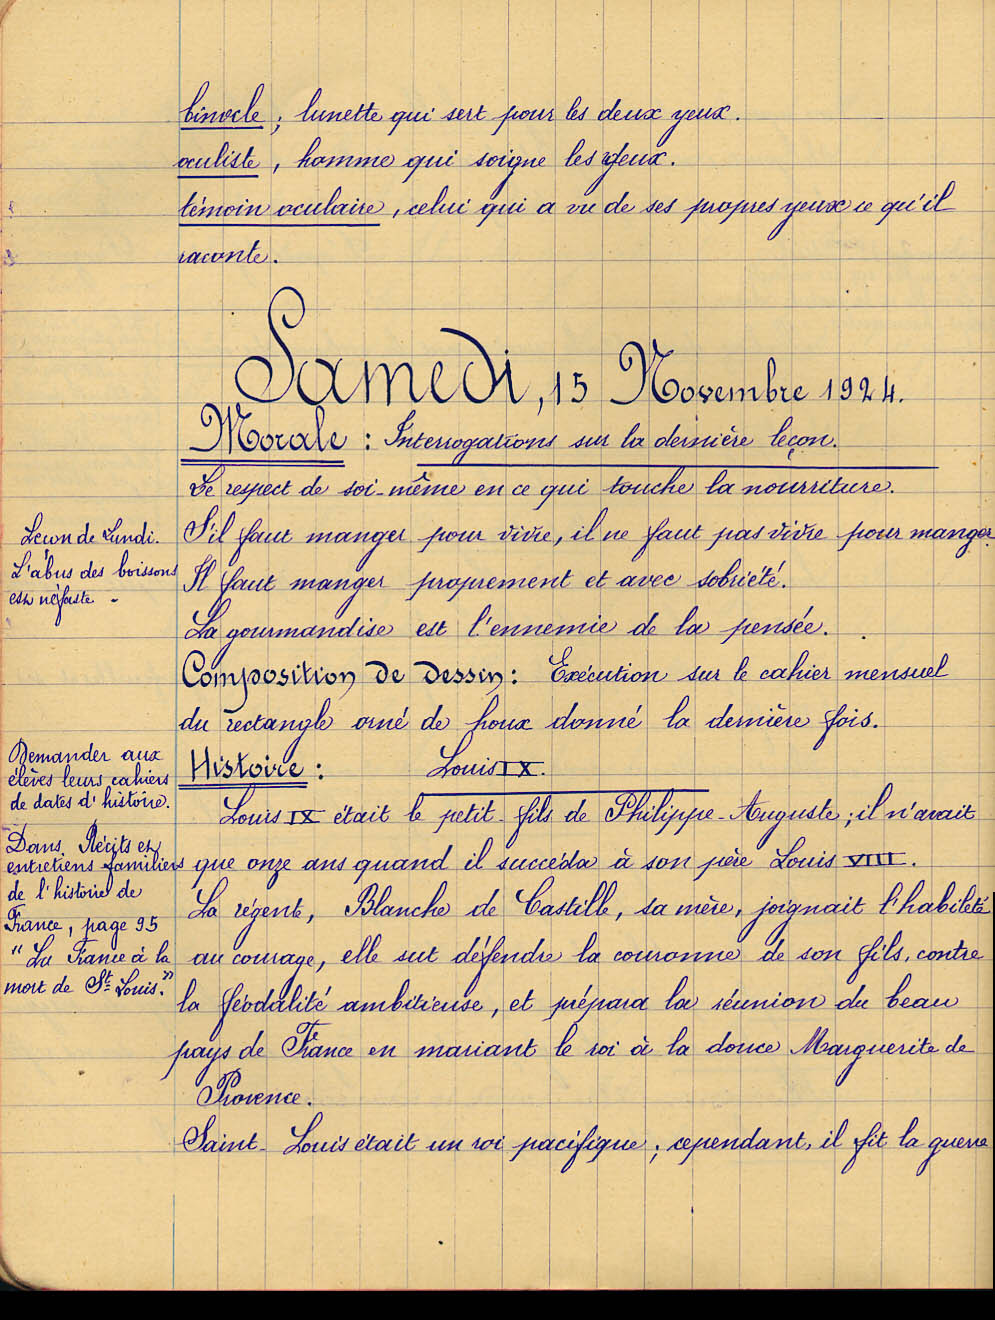 binocle ; lunette qui sert pour les deux yeux.
oculiste , homme qui soigne les yeux.
témoin oculaire , celui qui a vu de ses propres yeux ce qu'il
raconte.
Samedi, 15 Novembre 1924.
Morale : Interrogations sur la dernière leçon.
Le respect de soi-même en ce qui touche la nourriture.
Leçon de Lundi.
L'abus des boissons
est néfaste .
S'il faut manger pour vivre, il ne faut pas vivre pour manger.
Il faut manger proprement et avec sobriété.
La gourmandise est l'ennemie de la pensée.
Composition de dessin : Exécution sur le cahier mensuel
du rectangle orné de houx donné la dernière fois.
Demander aux
élèves leurs cahiers
de dates d'histoire.
Histoire : Louis IX.
Louis IX était le petit-fils de Philippe-Auguste ; il n'avait
Dans Récits et
entretiens familiers
de l'histoire de
France, page 95
"La France à la
mort de St Louis."
que onze ans quand il succéda à son père Louis VIII.
La régente, Blanche de Castille, sa mère, joignait l'habileté
au courage, elle sut défendre la couronne de son fils, contre
la féodalité ambitieuse, et prépara la réunion du beau
pays de France en mariant le roi à la douce Marguerite de
Provence.
Saint-Louis était un roi pacifique ; cependant, il fit la guerre